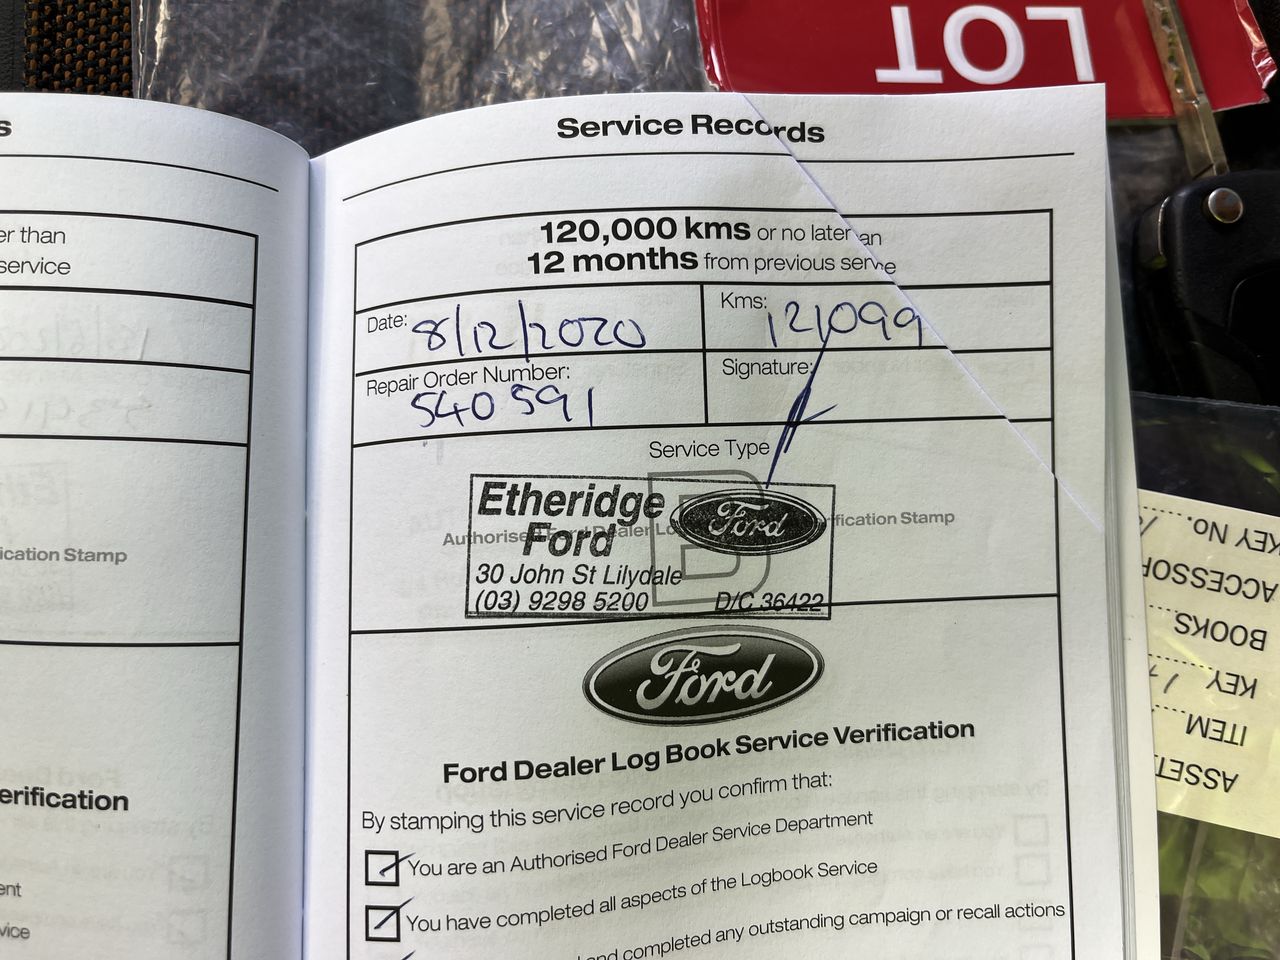 LOT
s
er than
service
ication Stamp
erification
ent
vice
Service Records
120,000 kms or no later an
12 months from previous service
Date: 8/12/2020
Kms: 121099
Repair Order Number: 540591
Signature:
Service Type
B
Etheridge
Ford
Ford
Authorised Ford Dealer Lo
rification Stamp
30 John St Lilydale
(03) 9298 5200 D/C 36422
Ford
Ford Dealer Log Book Service Verification
By stamping this service record you confirm that:
You are an Authorised Ford Dealer Service Department
You have completed all aspects of the Logbook Service
and completed any outstanding campaign or recall actions
ASSET
ITEM
KEY
BOOKS
ACCESSOR
KEY NO.